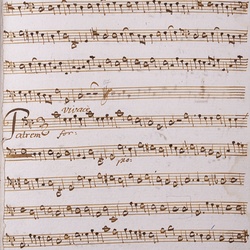 Vivace
Patrem for:
pia: